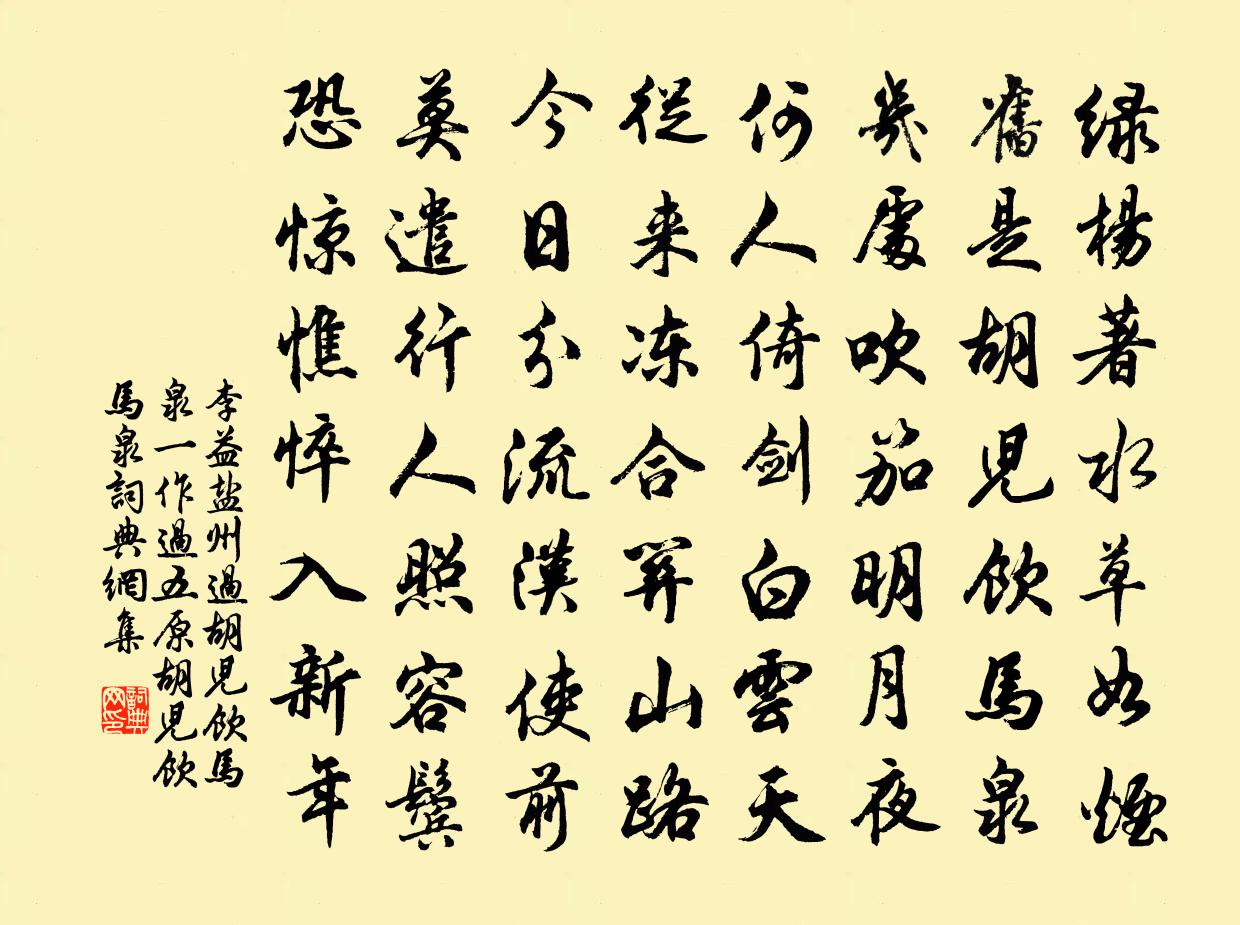 绿楊著水草如煙
舊是胡兒飲馬泉
幾處吹笳明月夜
何人倚劍白雲天
從来冻合關山路
今日分流漢使前
莫遣行人照容鬢
恐惊憔悴入新年
李益盐州過胡兒飲馬
泉一作過五原胡兒飲
馬泉詞典網集
詞典
网印